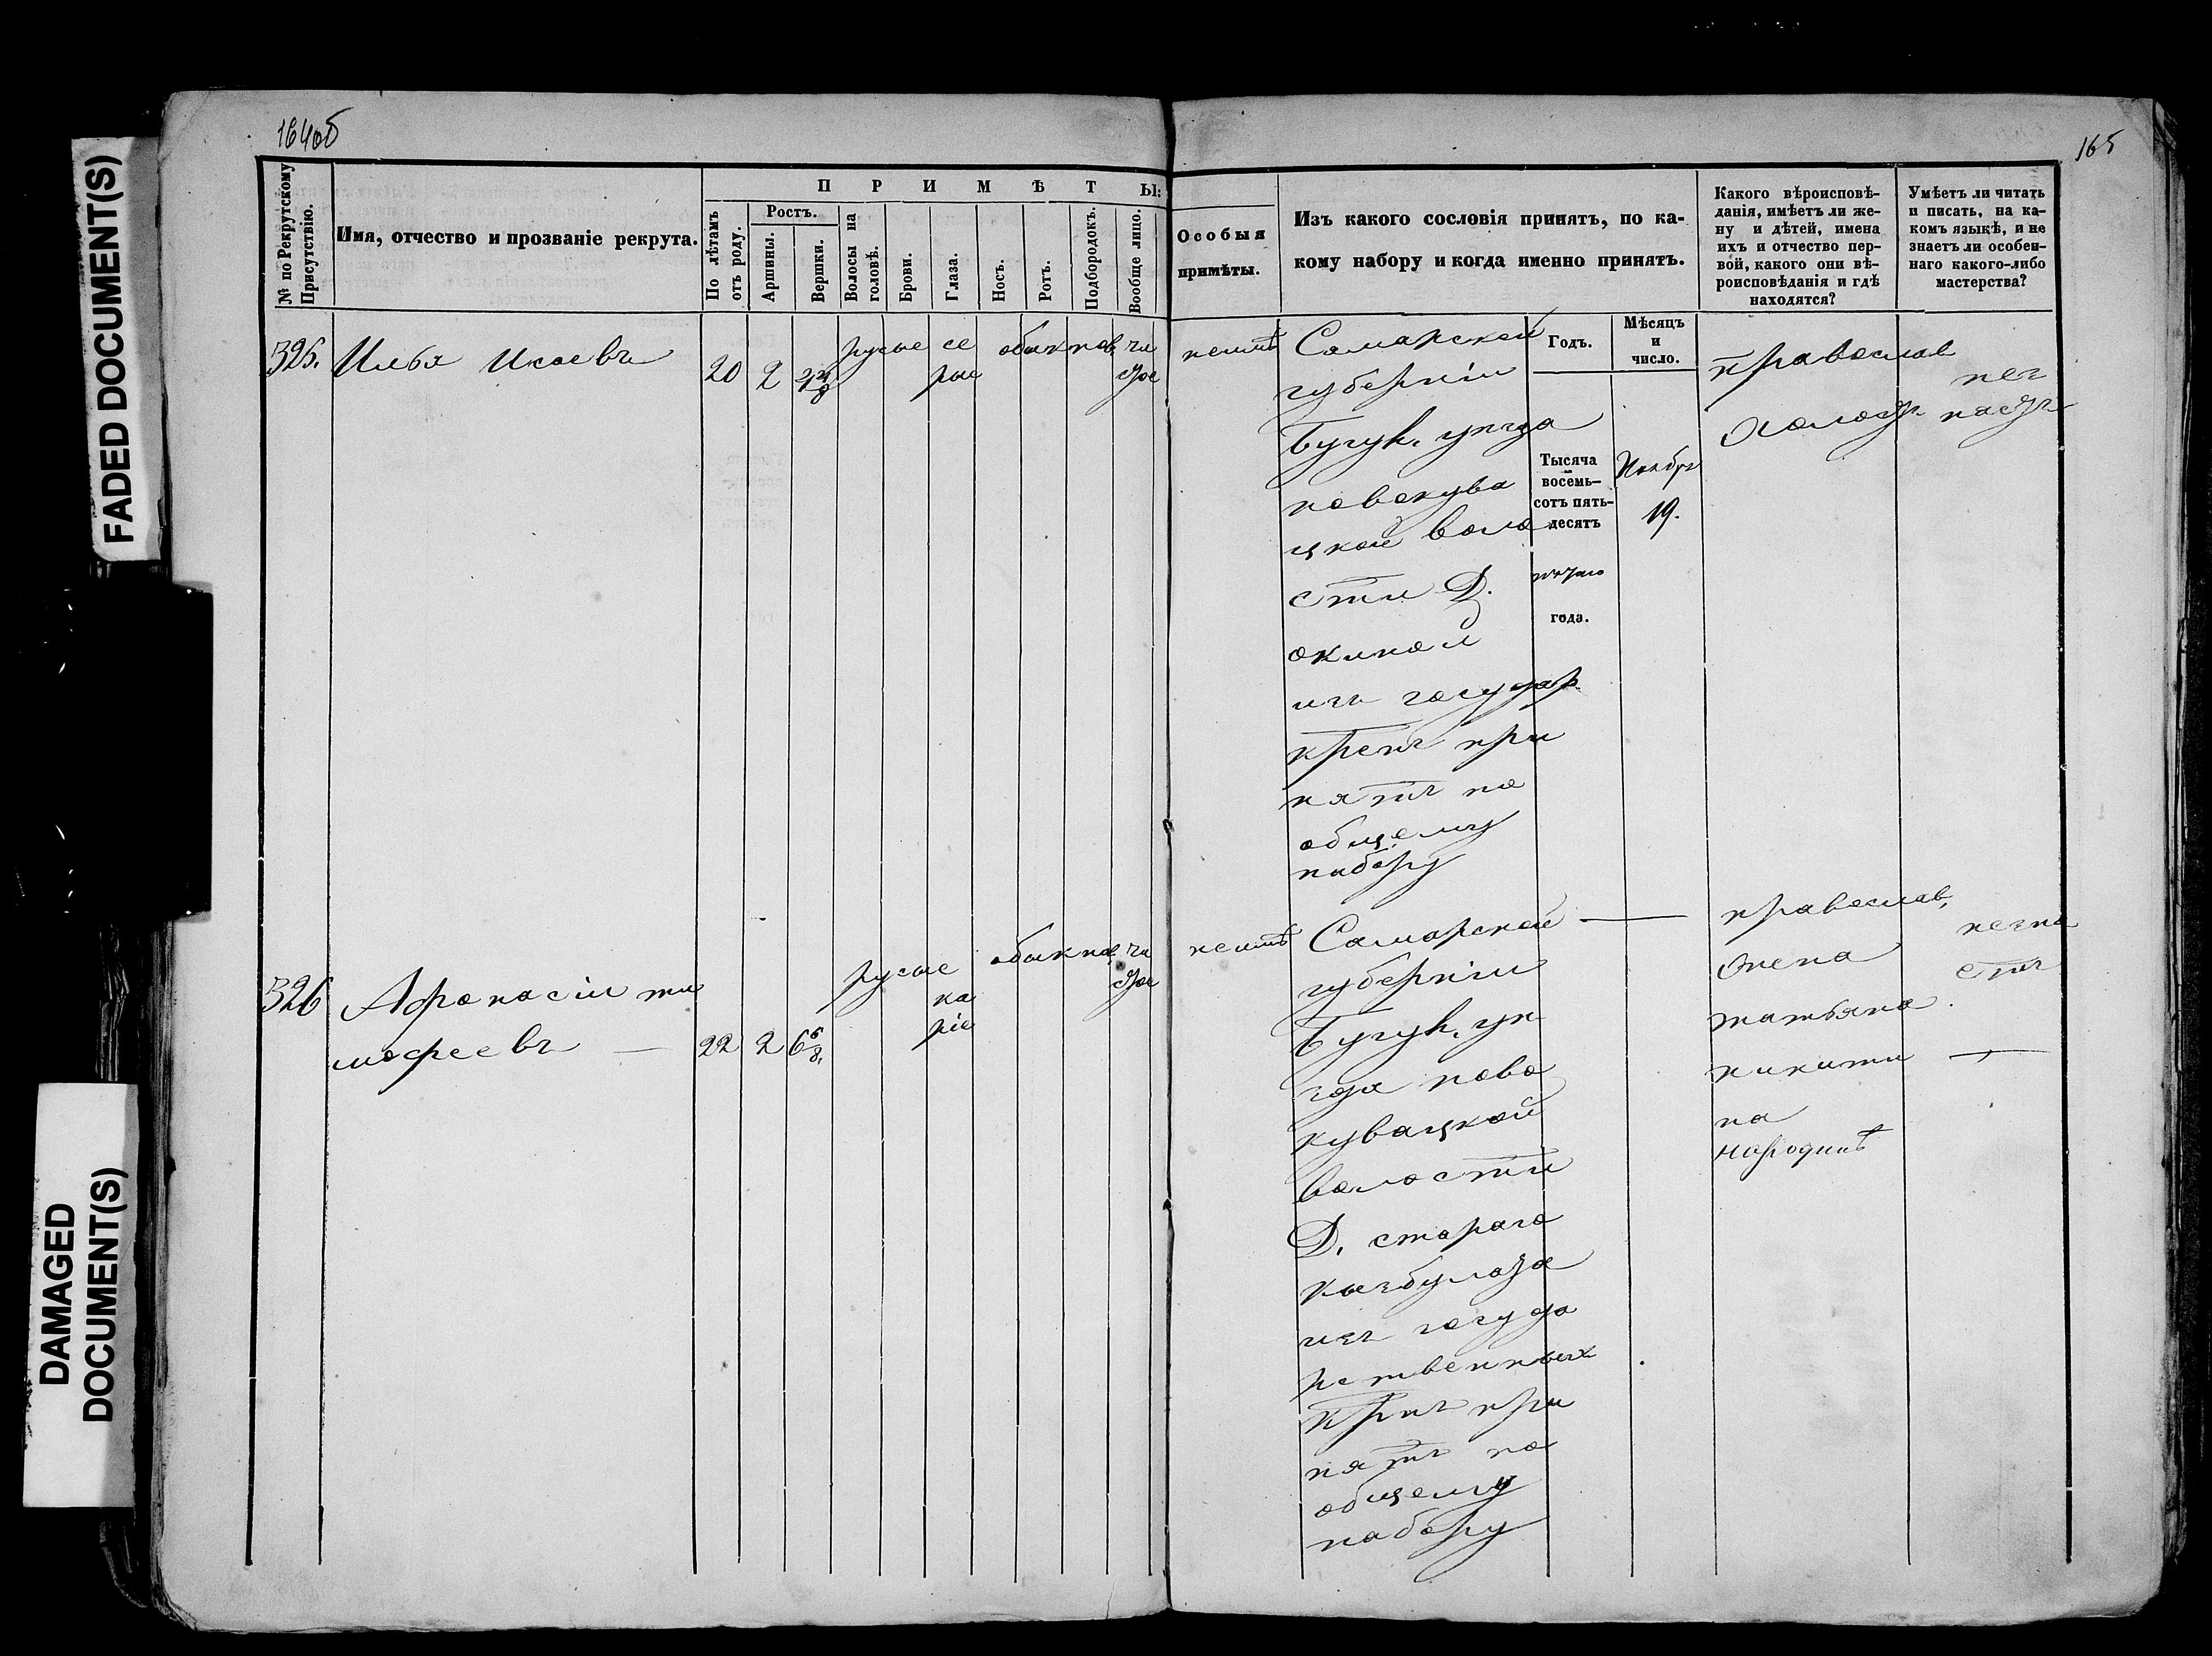 164об
165
FADED DOCUMENT(S)
DAMAGED
DOCUMENT(S)
№ по Рекрутскому
Присутствію.
Имя, отчество и прозваніе рекрута.
ПРИМѢТЫ:
По лѣтамъ
отъ роду.
Ростъ.
Аршины.
Вершки.
Волосы на
головѣ.
Брови.
Глаза.
Носъ.
Ротъ.
Подбородокъ.
Вообще лицо.
Особыя
примѣты.
Изъ какого сословія принятъ, по ка-
кому набору и когда именно принятъ.
Какого вѣроисповѣ-
данія, имѣетъ ли же-
ну и дѣтей, имена
ихъ и отчество пер-
вой, какого они вѣ-
роисповѣданія и гдѣ
находятся?
Умѣетъ ли читать
и писать, на ка-
комъ языкѣ, и не
знаетъ ли особен-
наго какого-либо
мастерства?
325.
Илья Исаевъ
20
2
русые
се
рые
обыкнов,
чи
стое
неимѣ
Самарской
губерніи
Бугур. уезда
новокува
цкой воло
сти Д.
изъ государ
крепъ при
нятъ по
общему
набору
Годъ.
Мѣсяцъ
и
число.
Тысяча
восемь-
сотъ пять-
десятъ
пятаго
года.
Ноября
19.
православ
холостъ
326
Афонасіи ти
мофеевъ —
22
2
6 6/8.
русые
ка
ріе
обыкнов,
чи
стое
неимѣ
Самарской
губерніи
Бугур. уе
зда ново
кувацкой
волости
Д. стараго
изъ госуда
рственныхъ
крпъ при
нятъ по
общему
набору
—
православ,
жена
татьяна
никити
на
народинѣ
—